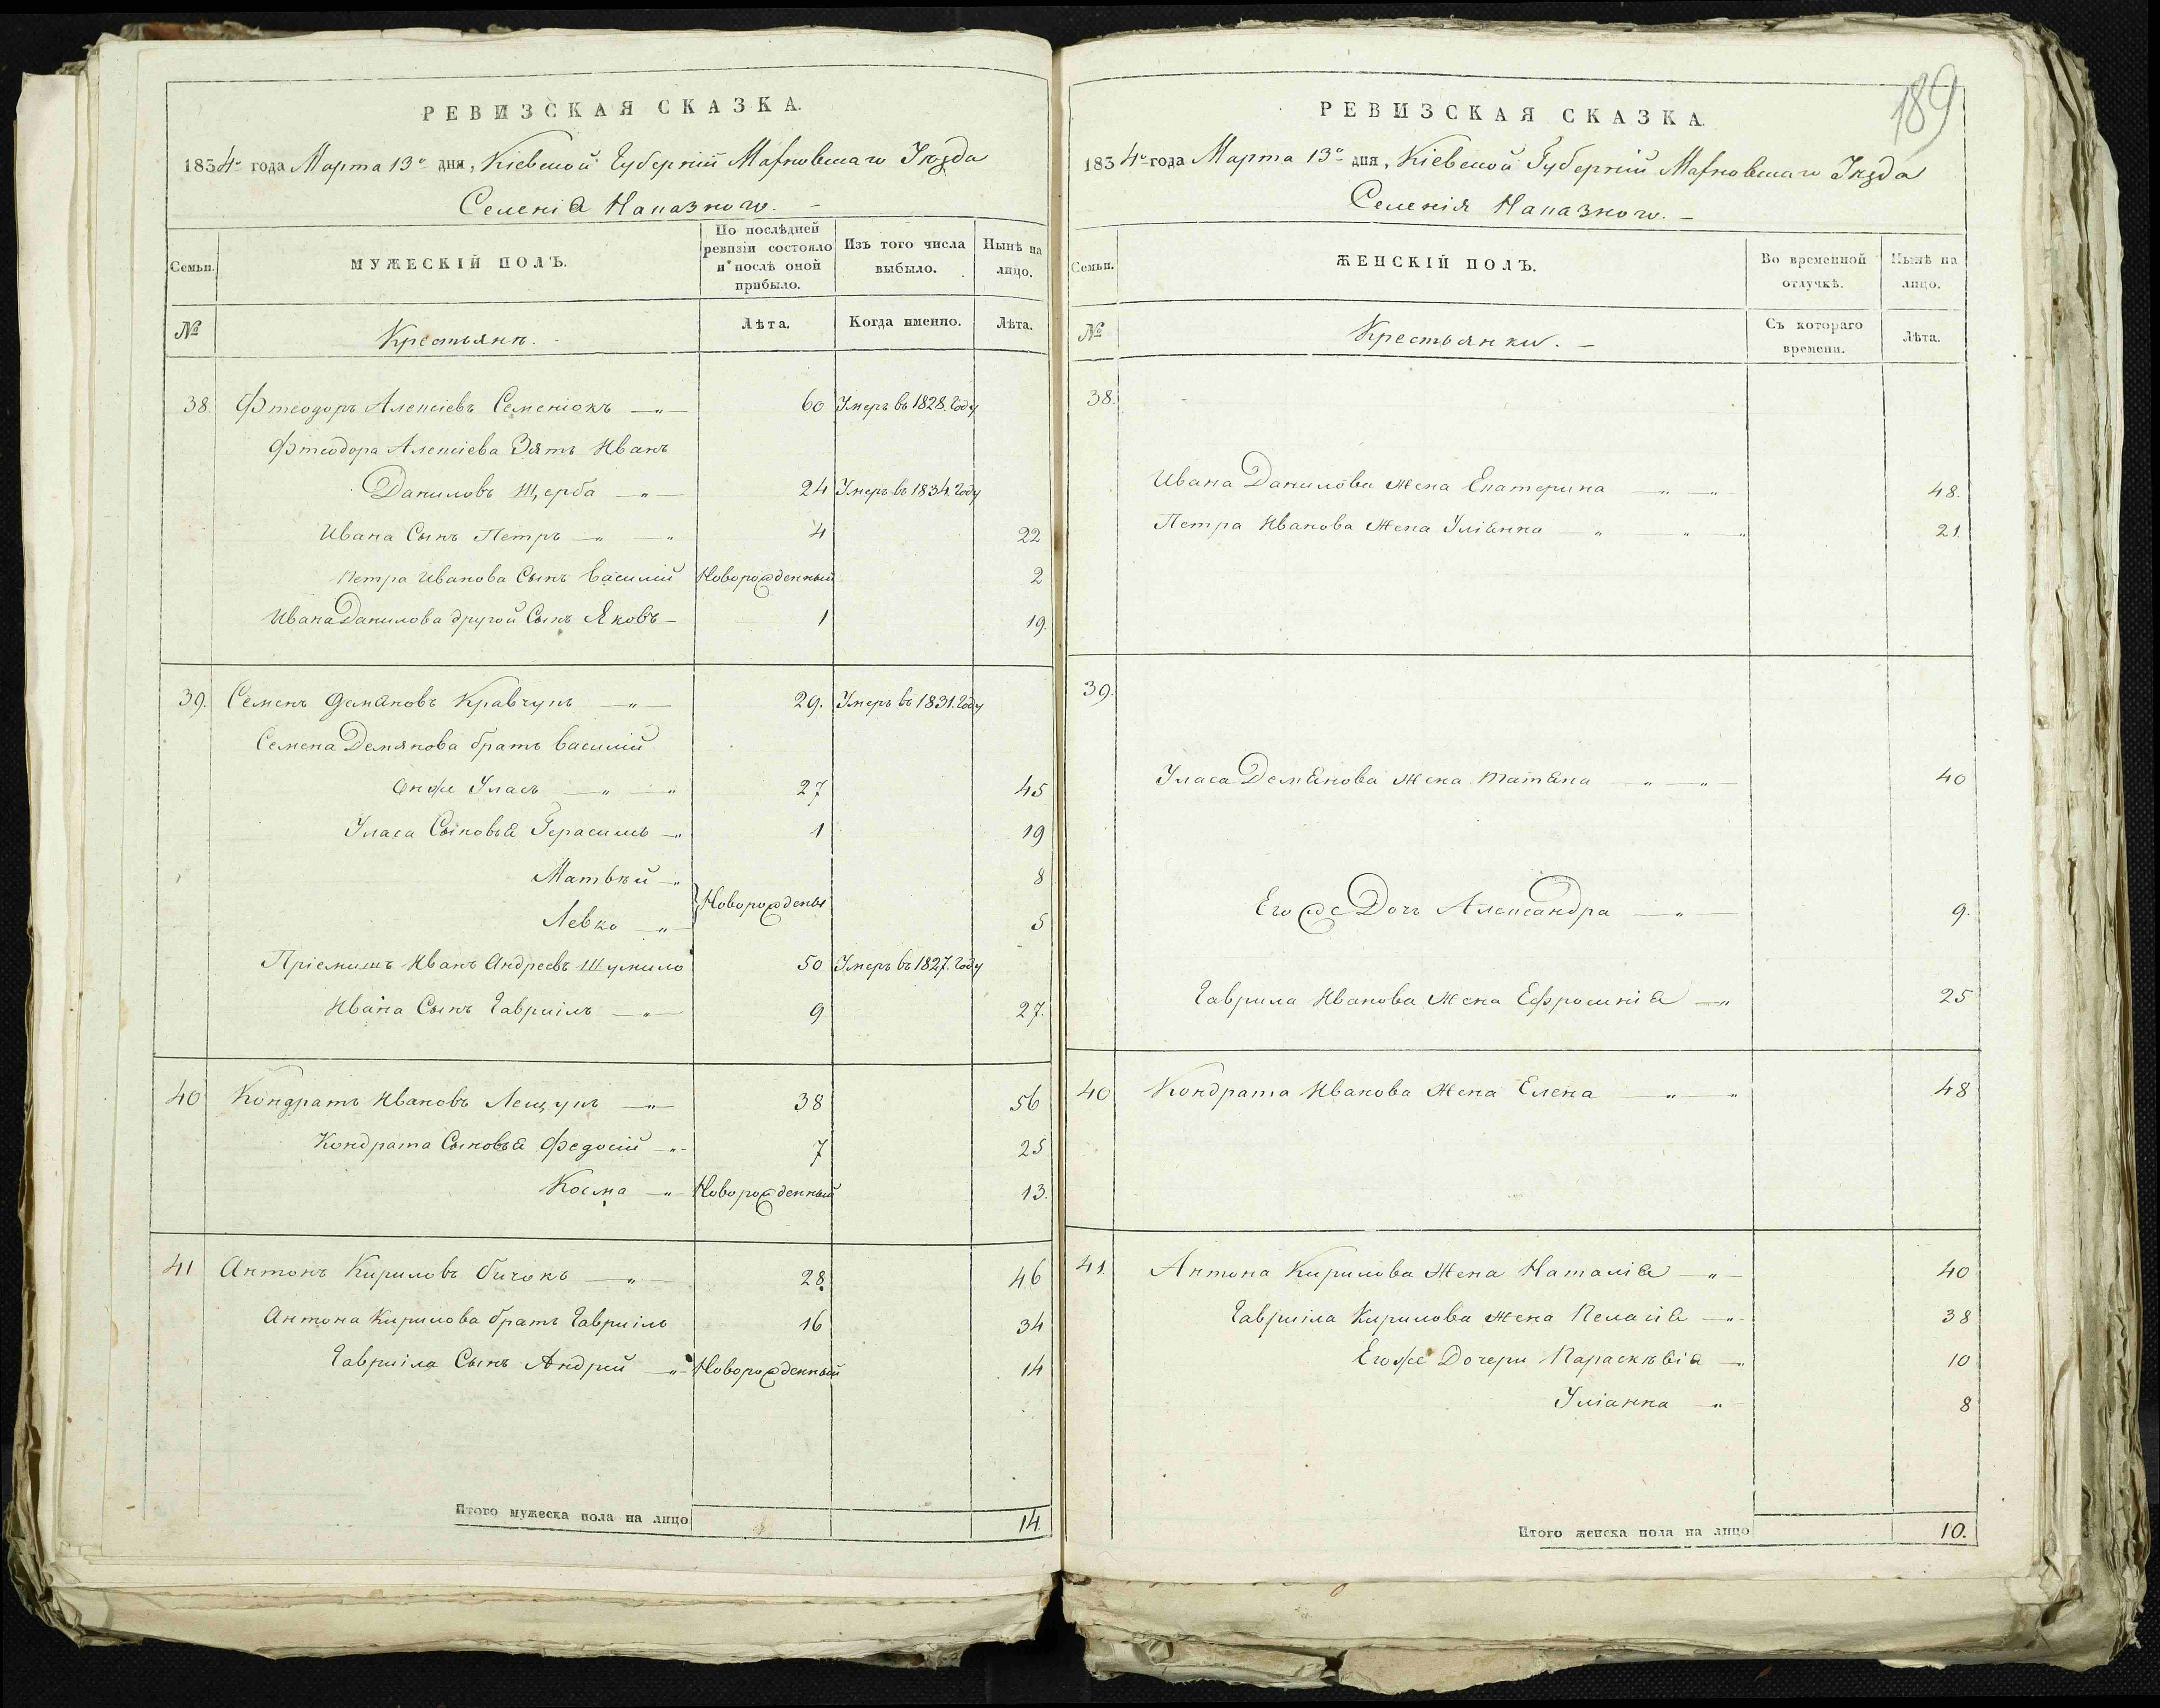 РЕВИЗСКАЯ СКАЗКА.
1834го года Марта 13го дня, Кіевской Губерніи Махновскаго Уѣзда
Селенія Наказного.
Семьи.
МУЖЕСКІЙ ПОЛЪ.
По послѣдней ревизіи состояло и послѣ оной прибыло.
Изъ того числа выбыло.
Нынѣ на лицо.
№
Крестьянъ.
Лѣта.
Когда именно.
Лѣта.
38. Фтеодоръ Алексіевъ Семеніокъ 60 Умеръ въ 1828. Году
Фтеодора Алексіева Зять Иванъ
Даниловъ Щерба 24 Умеръ въ 1834. Году
Ивана Сынъ Петръ 4 22
Петра Иванова Сынъ Василій Новорожденный 2
Ивана Данилова другой Сынъ Яковъ 1 19.
39. Семенъ Демяновъ Кравчукъ 29. Умеръ въ 1831. Году
Семена Демянова братъ Василій
Онже Уласъ 27 45
Уласа Сыновья Герасимъ 1 19
Матвѣй 8
Новорождены
Левко 5
Пріемишъ Иванъ Андреевъ Шумило 50 Умеръ въ 1827. Году
Ивана Сынъ Гавриілъ 9 27.
40 Кондратъ Ивановъ Лещукъ 38 56
Кондрата Сыновья Федосій 7 25
Косма Новорожденный 13.
41 Антонъ Кириловъ бичокъ 28 46
Антона Кирилова братъ Гавриілъ 16 34
Гавриіла Сынъ Андрій Новорожденный 14
Итого мужеска пола на лицо 14
189
РЕВИЗСКАЯ СКАЗКА.
1834го года Марта 13го дня, Кіевской Губерніи Махновскаго Уѣзда
Селенія Наказного.
Семьи.
ЖЕНСКІЙ ПОЛЪ.
Во временной отлучкѣ.
Нынѣ на лицо.
№
Крестьянки.
Съ котораго времени.
Лѣта.
38.
Ивана Данилова Жена Екатерина 48.
Петра Иванова Жена Уліанна 21.
39.
Уласа Демянова Жена Татяна 40
Его же Дочь Александра 9.
Гаврила Иванова Жена Ефросинія 25
40 Кондрата Иванова Жена Елена 48
41. Антона Кирилова Жена Наталія 40
Гавриіла Кирилова Жена Пелагія 38
Егоже Дочери Параскѣвія 10
Уліанна 8
Итого женска пола на лицо 10.